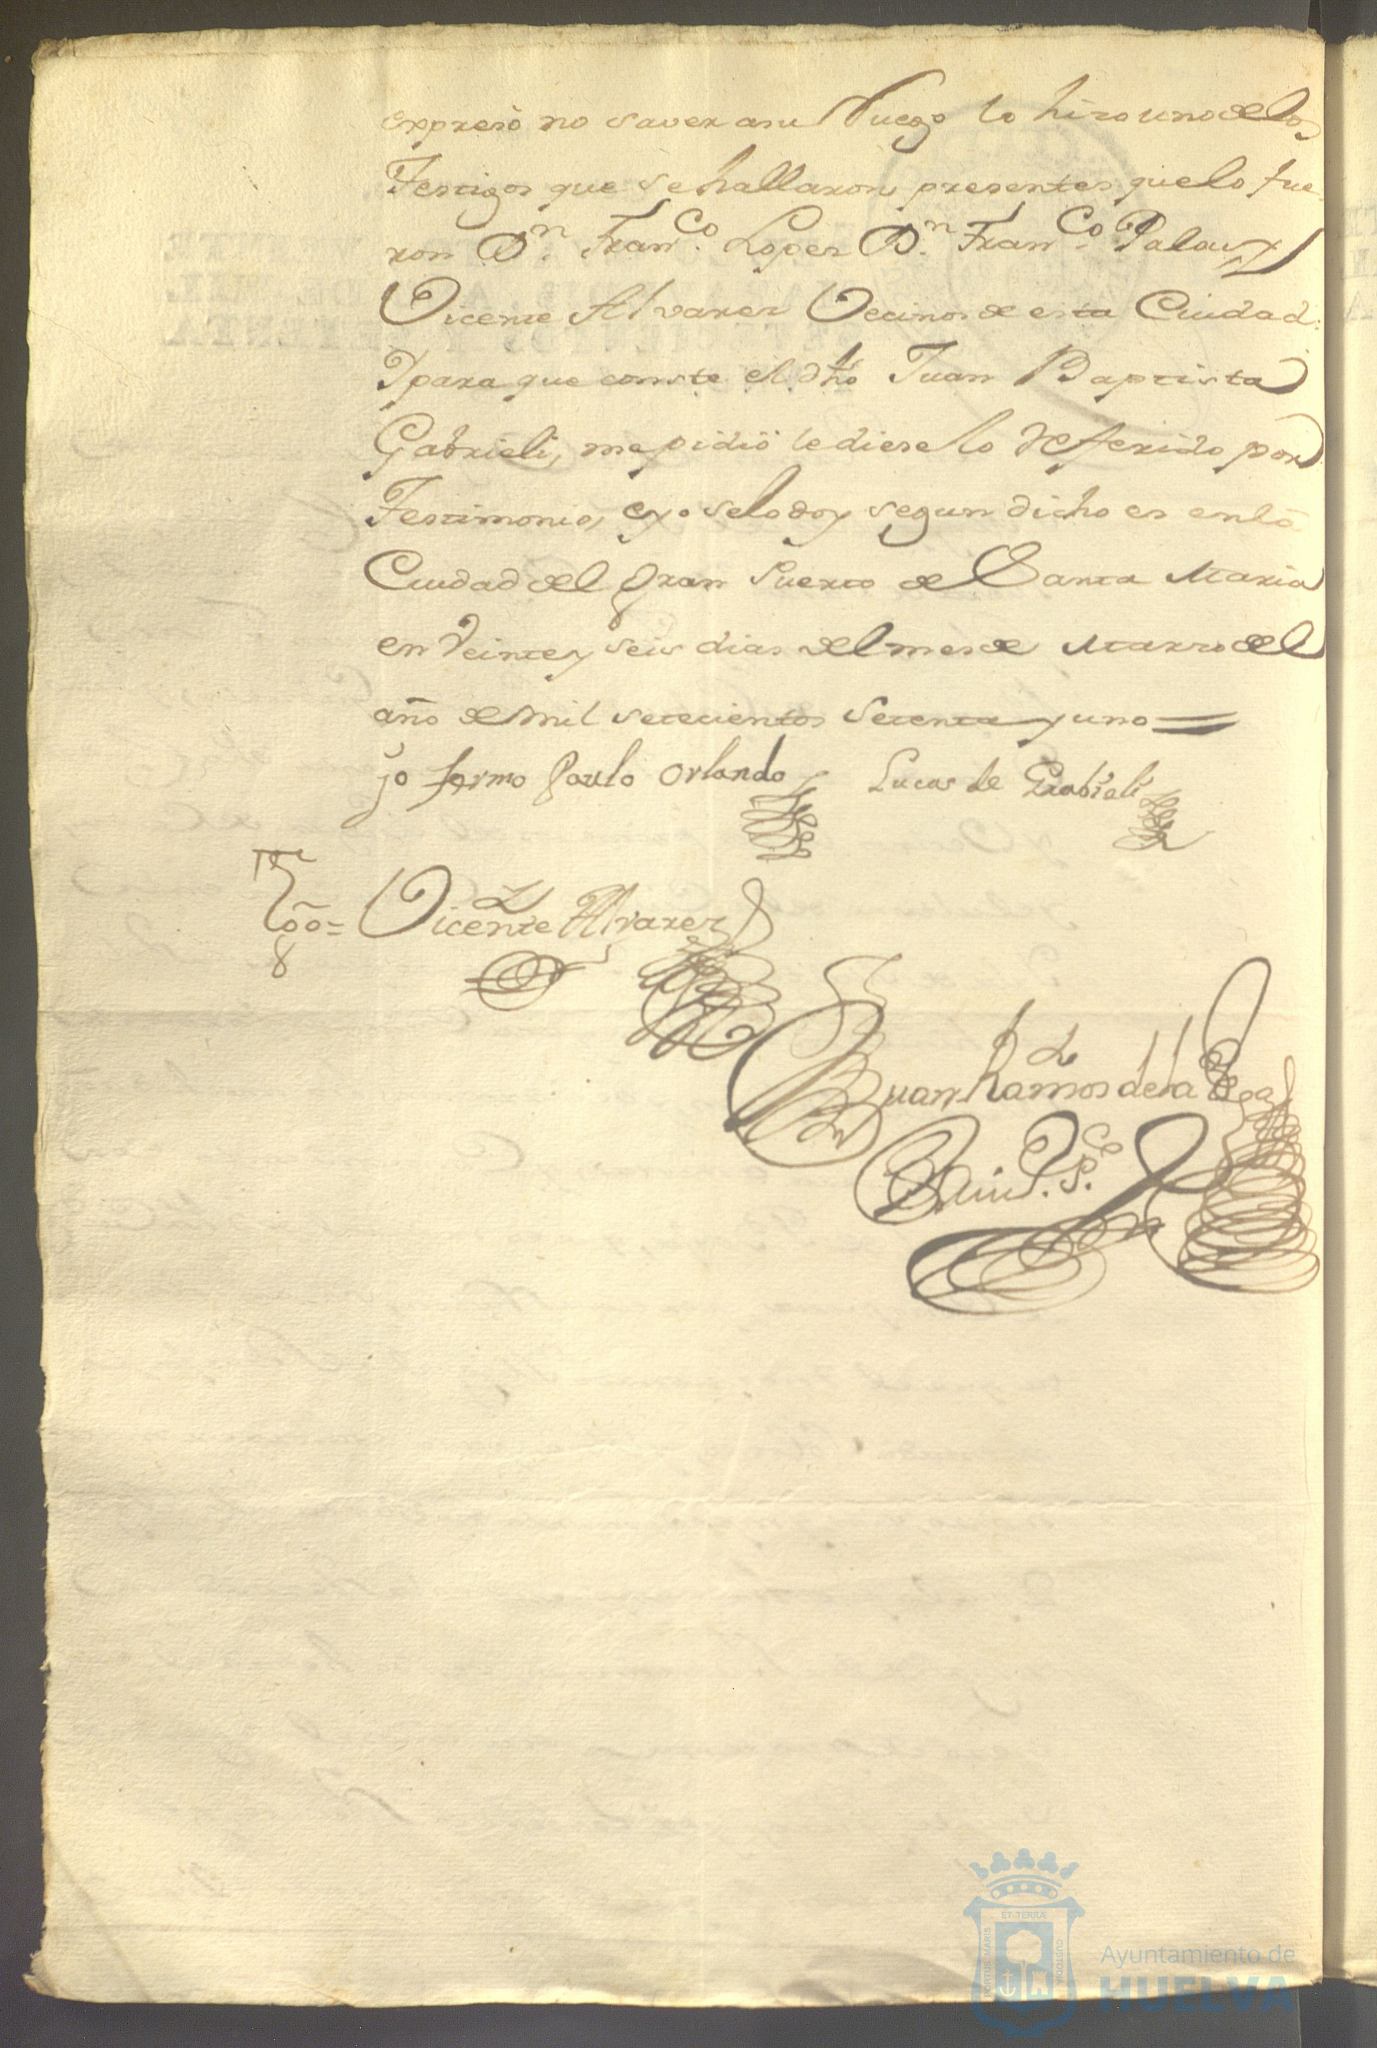 expresò no saver asu Ruego lo hizo uno de los
Testigos que se hallaron presentes que lo fue
ron Dn. Franco. Lopez Dn. Franco. Palau y
Vicente Alvarez Vecinos de esta Ciudad.
Y para que conste el dho Juan Baptista
Gabrieli, me pidiò le diese lo Referido por
Testimonio, e yo selo doy segun dicho es en la
Ciudad del Gran Puerto de Santa Maria
en Veinte y seis dias del mes de Marzo del
año de mil setecientos setenta y uno =
jo fermo Paulo Orlando Lucas de Grabieli
Tgo = Vicente Alvarez
Juan Ramos de la Vega
Ess.no Puco.
Ayuntamiento de
HUELVA
PORTUS MARIS
ET TERRAE
CUSTODIA